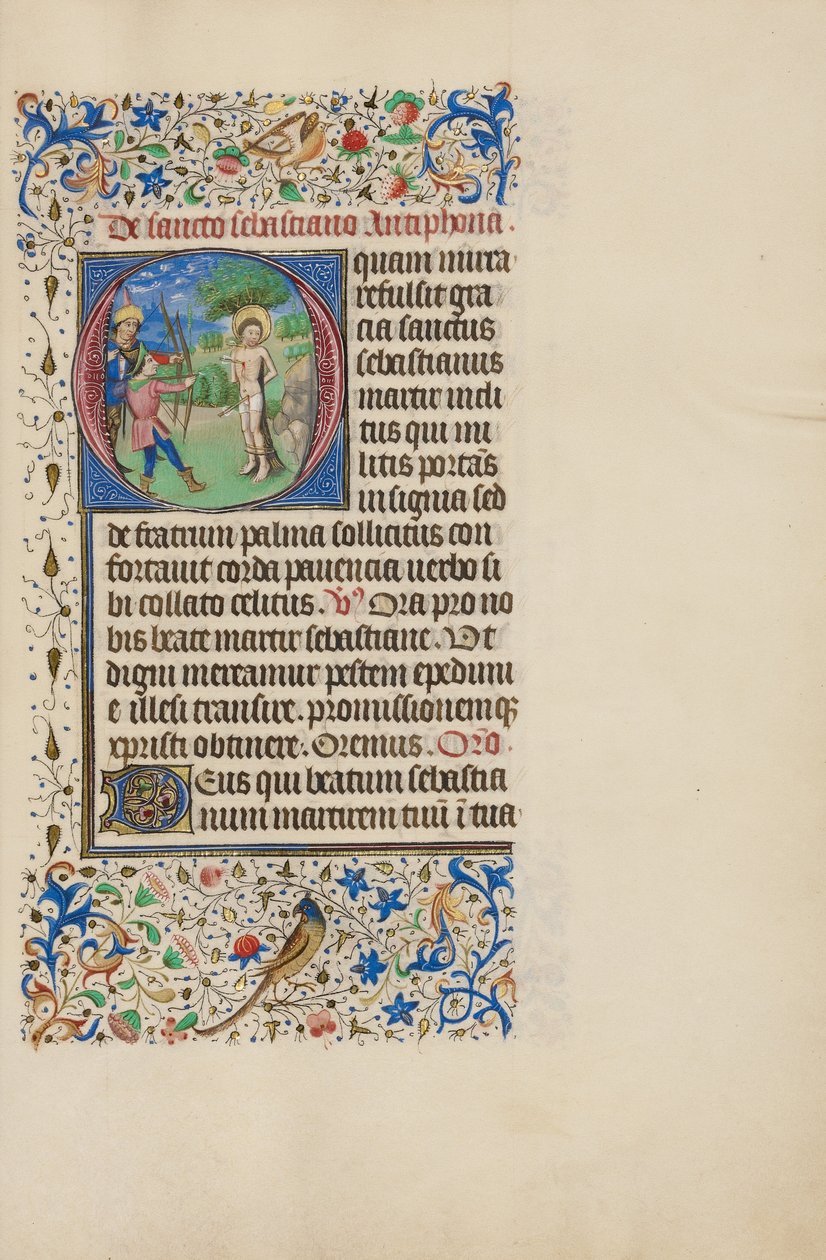 De sancto sebastiano Antiphona.
O
quam mira
refulsit gra
cia sanctus
sebastianus
martir incli
tus qui mi
litis portās
insignia sed
de fratrum palma sollicitus con
fortauit corda pauencia uerbo si
bi collato celitus. V̉ Ora pro no
bis beate martir sebastiane. Vt
digni mereamur pestem epedimi
e illesi transire. promissionem qꝫ
xpristi obtinere. Oremus. Oro.
Deus qui beatum sebastia
num martirem tuū ī tua